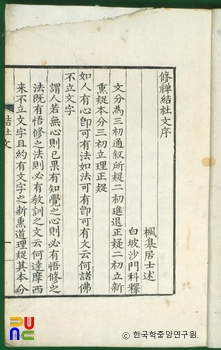 修禪結社文序
楓集居士述
白坡沙門科釋
文分為三初通叙所疑二初進退正疑二初立
熏疑本分三初立理正疑
如人有心卽可有法如法可有卽可有文云何諸佛
不立文字
謂人若無心則已果有知覺之心則必有悟修之
法既有悟修之法則必有敎訓之文云何達摩西
來不立文字且約有文字之新熏道理疑其本分
結社文
한국학중앙연구원